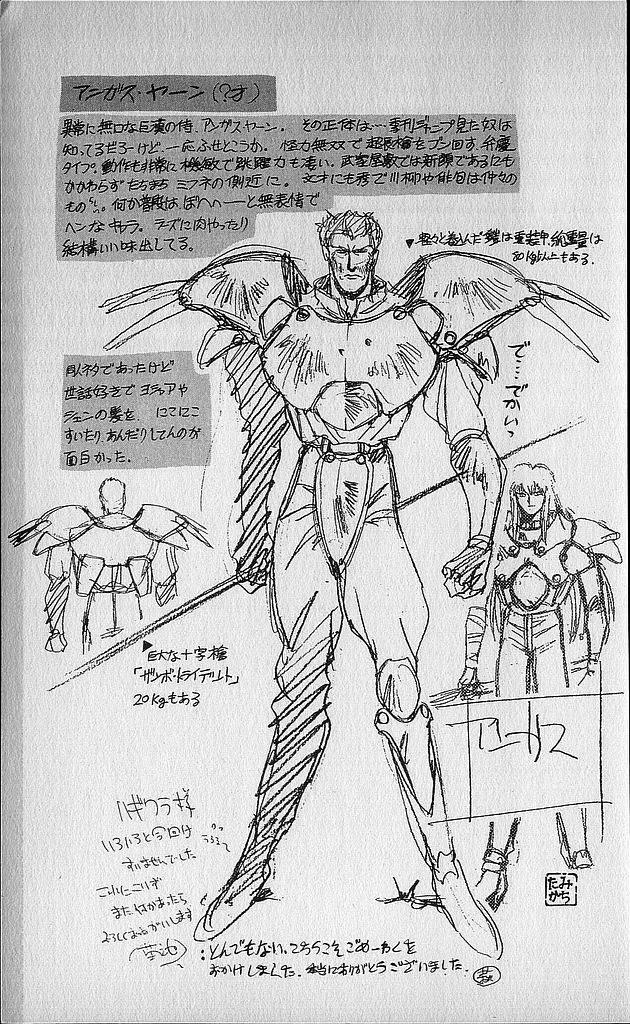 アンガス・ヤーン(?才)
異常に無口な巨漢の侍、アンガスヤーン。その正体は…季刊ジャンプ見た奴は
知ってるだろーけど、一応ふせとこうか。怪力無双で超長槍をブン回す、弁慶
タイプ。動作も非常に機敏で跳躍力も凄い。武客屋敷では新顔であるにも
かかわらずたちまちミフネの側近に。文才にも秀で川柳や俳句は仲々の
もの。何か普段はぼへへーーと無表情で
ヘンなキャラ。ラーズに肉やったり
結構いい味出してる。
▼軽々と着込んだ鎧は重装甲、総重量は
80kg以上もある。
で…でかいっ
世話好きでヨシュアや
シェンの髪を
すいたり、あんだりしてんのが
面白かった。
▶巨大な十字槍
「ザンボ・トライデント」
20kgもある
アンガス
ハギワラ様
いろいろと今回は
すいませんでした
これにこりず
また何かあったら
よろしくおねがいします
:とんでもない、こちらこそごめーわくを
おかけしました。本当にありがとうございました。
たみ
かち